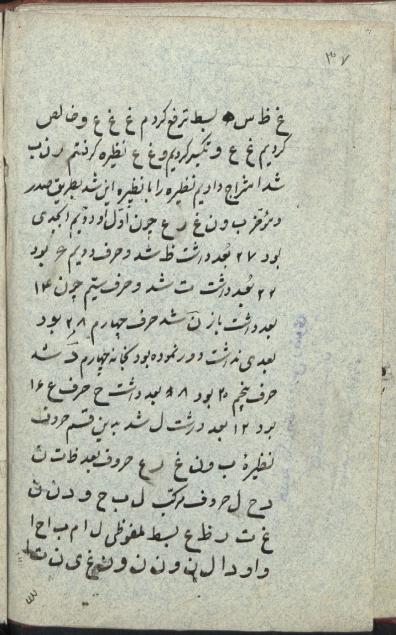 ۳۷
غ ظ س ه بسط ترفع کردم غ غ غ ع و خالص
کردیم غ ع و تکسیر کردیم و غ ع نظیره گرفتم ر ن ب
شد امتزاج دادیم نظیره را با نظیره این شد بطریق صدر
و مؤخر ب و ن غ ر ع چون اول او دویم ابجدی
بود ۲۷ بعد داشت ظ شد و حرف دویم ع بود
۲۲ بعد داشت ت شد و حرف سیم چون ۱۴
بعد داشت باز ن شد حرف چهارم ۲۸ بود
بعدی نداشت دور نموده بود بخانه چهارم د شد
حرف پنجم ۲۰ بود ۸ بعد داشت ح حرف ع ۱۶
بود ۱۲ بعد داشت ل شد به این قسم حروف
نظیرهٔ ب و ن غ ر ع حروف بعد ظ ت ن
د ح ل حروف مرکب ل ب ح و د ن ن
غ ت ر ظ ع بسط ملفوظی ل ام ب ا ح ا
و ا و د ا ل ن و ن ن و ن غ ی ن ت ا